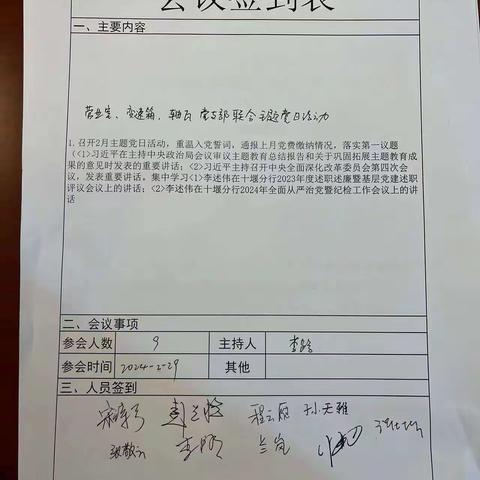 会议签到表
一、主要内容
营业室、变速箱、轴瓦党支部联合主题党日活动
1.召开2月主题党日活动，重温入党誓词，通报上月党费缴纳情况，落实第一议题
（<1>习近平在主持中央政治局会议审议主题教育总结报告和关于巩固拓展主题教育成
果的意见时发表的重要讲话；<2>习近平主持召开中央全面深化改革委员会第四次会
议，发表重要讲话。集中学习<1>李述伟在十堰分行2023年度述职述廉暨基层党建述职
评议会议上的讲话；<2>李述伟在十堰分行2024年全面从严治党暨纪检工作会议上的讲
话
二、会议事项
参会人数 9 主持人 李
参会时间 2024-2-29 其他
三、人员签到
程云 孙天雅
张 李明 兰岚